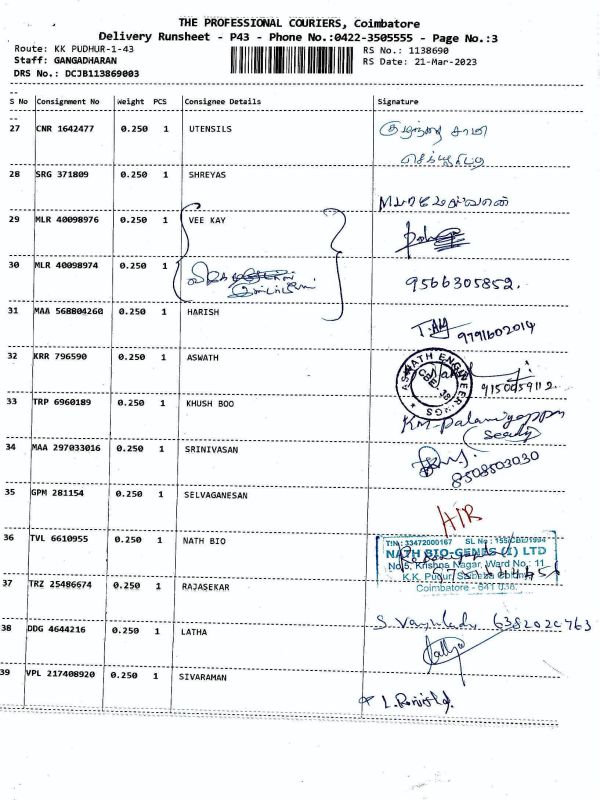 THE PROFESSIONAL COURIERS, Coimbatore
Delivery Runsheet - P43 - Phone No.:0422-3505555 - Page No.:3
Route: KK PUDHUR-1-43 RS No.: 1138690
Staff: GANGADHARAN RS Date: 21-Mar-2023
DRS No.: DCJB113869003
S No Consignment No Weight PCS Consignee Details Signature
27 CNR 1642477 0.250 1 UTENSILS
28 SRG 371809 0.250 1 SHREYAS
29 MLR 40098976 0.250 1 VEE KAY
30 MLR 40098974 0.250 1 9566305852.
31 MAA 568804260 0.250 1 HARISH 9791602014
32 KRR 796590 0.250 1 ASWATH
ASWATH ENGINEER
33 TRP 6960189 0.250 1 KHUSH BOO
34 MAA 297033016 0.250 1 SRINIVASAN 8508503030
35 GPM 281154 0.250 1 SELVAGANESAN
AIR
36 TVL 6610955 0.250 1 NATH BIO
TIN: 33472000167
NATH BIO-GENES (I) LTD
No.5, Krishna Nagar, Ward No.: 11
Coimbatore - 641 038.
37 TRZ 25486674 0.250 1 RAJASEKAR
38 DDG 4644216 0.250 1 LATHA
39 VPL 217408920 0.250 1 SIVARAMAN